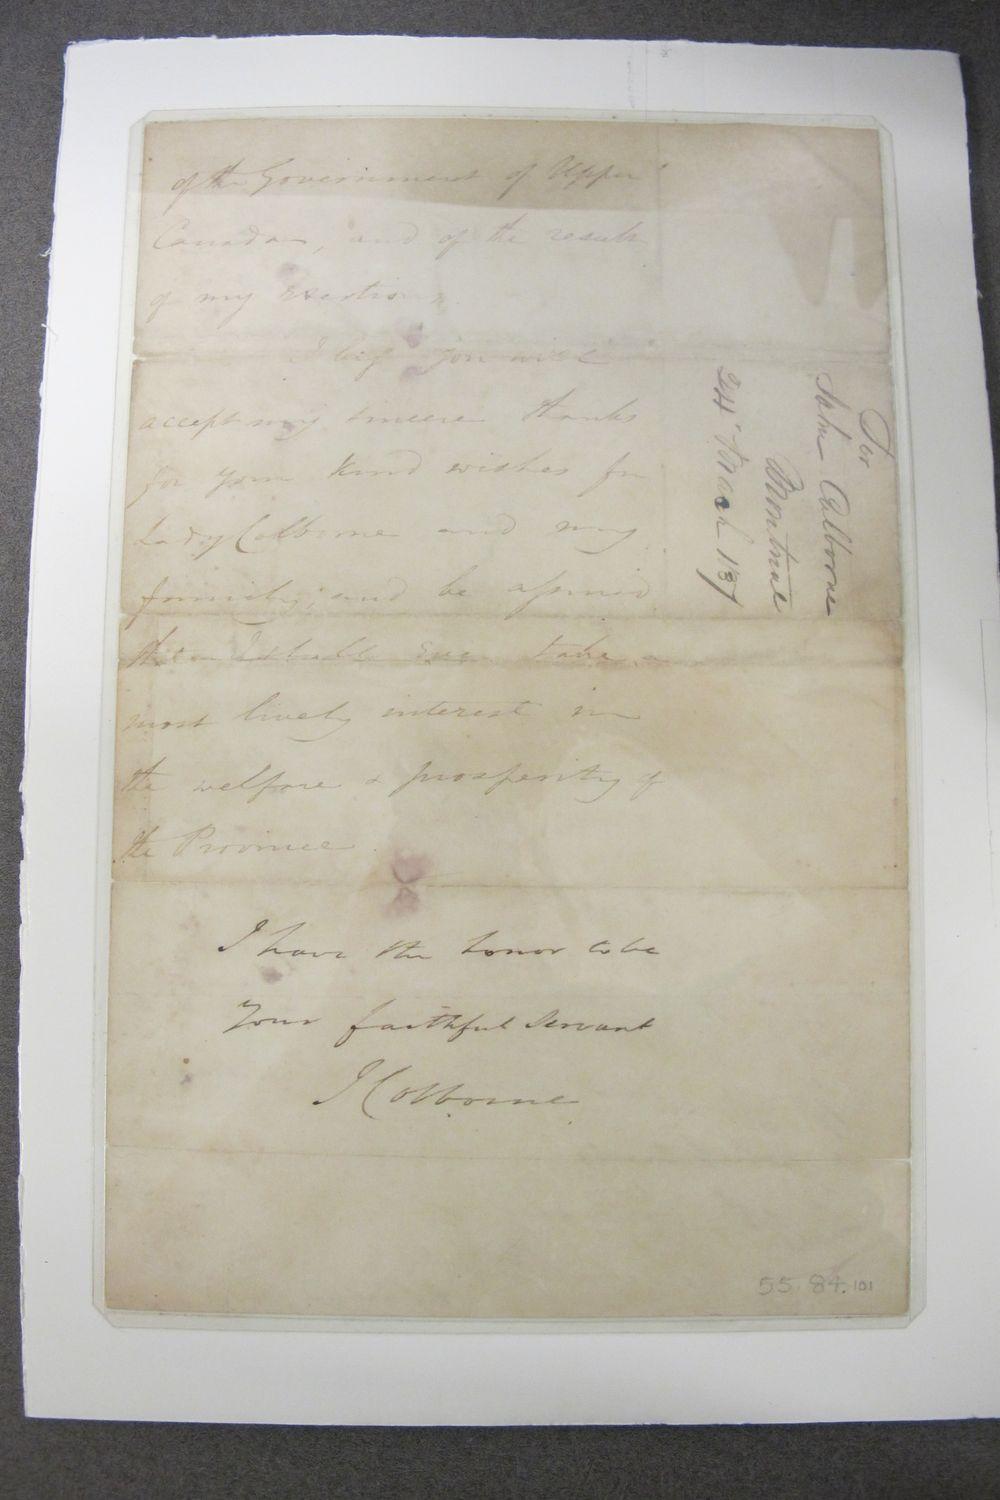 of the Government of Upper
Canada, and of the result
of my exertions.
I beg you will
accept my sincere thanks
for your kind wishes for
Lady Colborne and my
family; and be assured
that I shall ever take a
most lively interest in
the welfare & prosperity of
the Province.
I have the honor to be
Your faithful Servant
J Colborne
Sir
John Colborne
Montreal
24 March 1837
55.84.101